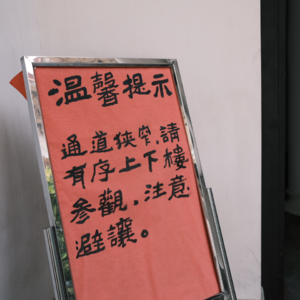 溫馨提示
通道狹窄,請
有序上下樓
參觀,注意
避讓。